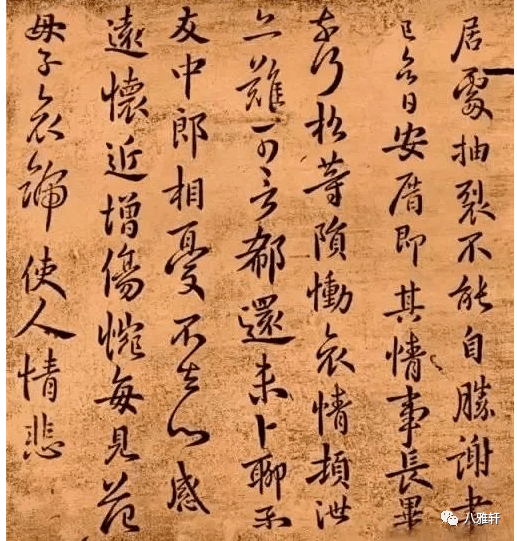 居處抽裂不能自勝謝書
已日安厝即其情事長畢
奈何松等隕慟哀情頓泄
亦難可言郗還未卜聊示
友中郎相憂不去心感
遠懷近增傷惋每見范
母子哀號使人情悲
八雅轩